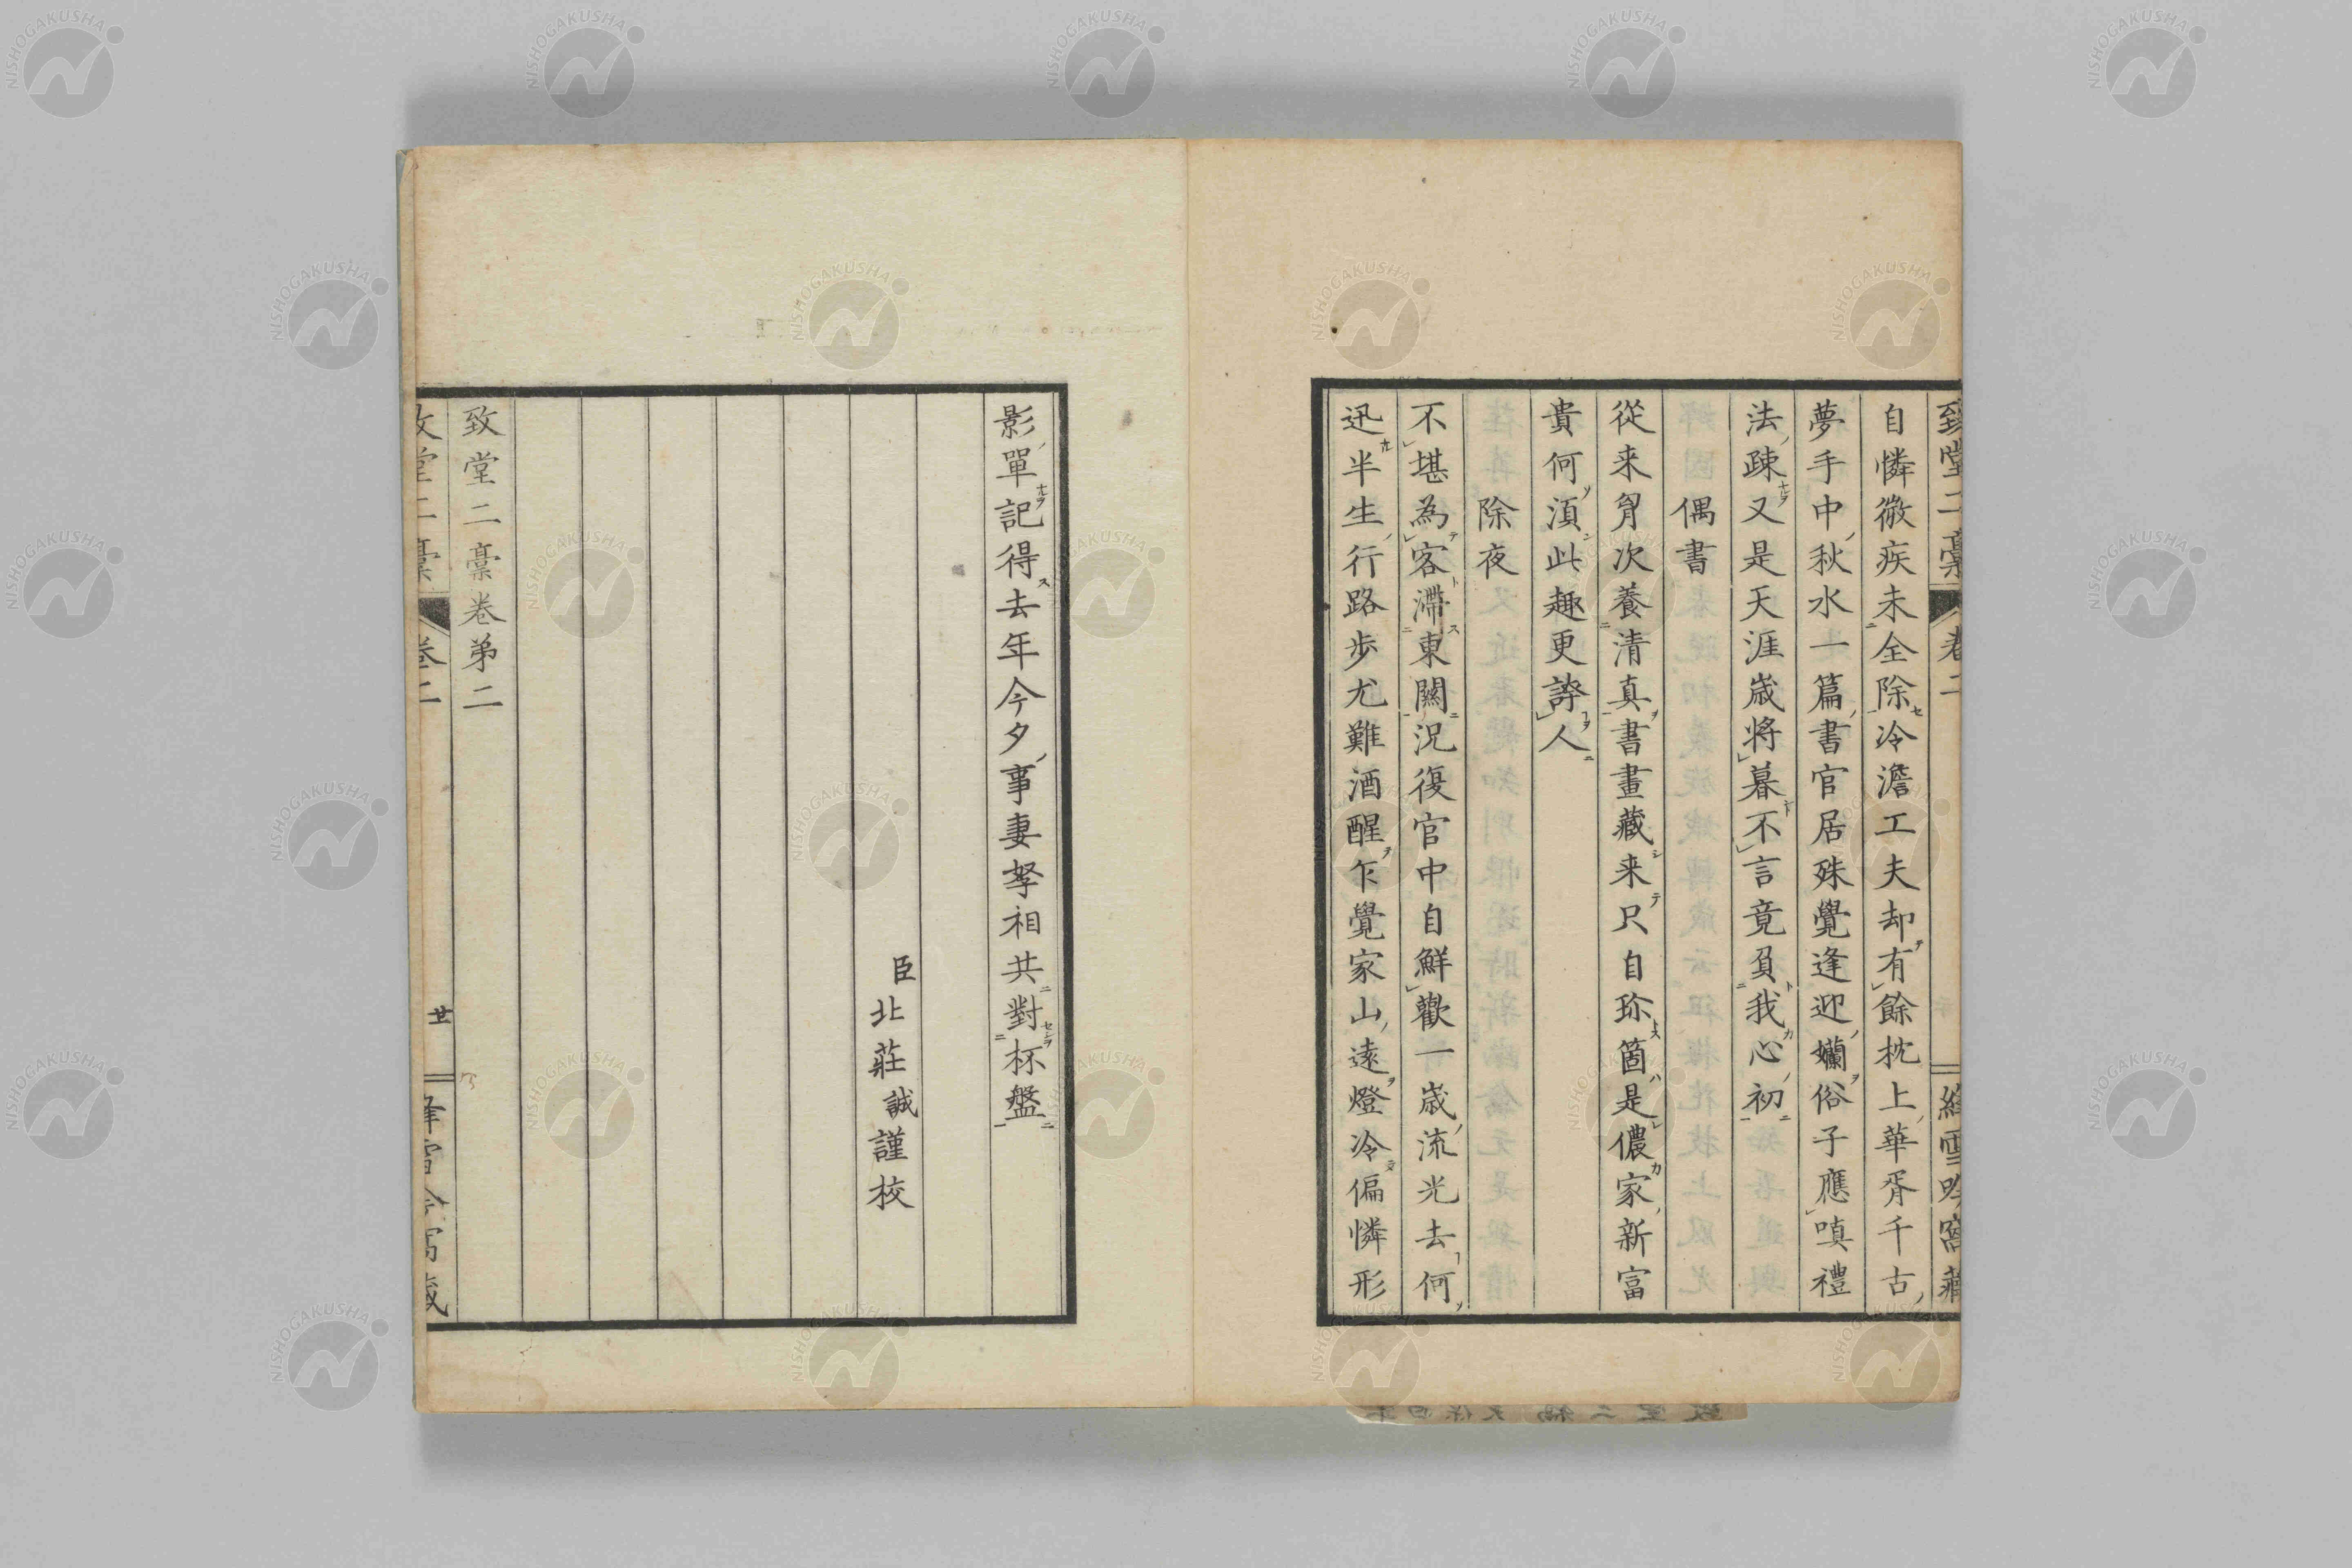 致堂二稾 卷二 絳雪吟窩藏
自憐微疾未全除冷澹工夫却有餘枕上華胥千古
夢手中秋水一篇書官居殊覺逢迎嬾俗子應嗔禮
法疎又是天涯歲將暮不言竟負我心初
偶書
從来胷次養清真書畫藏来只自珎箇是儂家新富
貴何湏此趣更誇人
除夜
不堪為客滯東關況復官中自鮮歡一歲流光去何
迅半生行路步尤難酒醒乍覺家山遠燈冷偏憐形
影單記得去年今夕事妻孥相共對杯盤
臣北莊誠謹校
致堂二稾卷弟二
致堂二稾 卷二 廿 絳雪吟窩藏
NISHOGAKUSHA